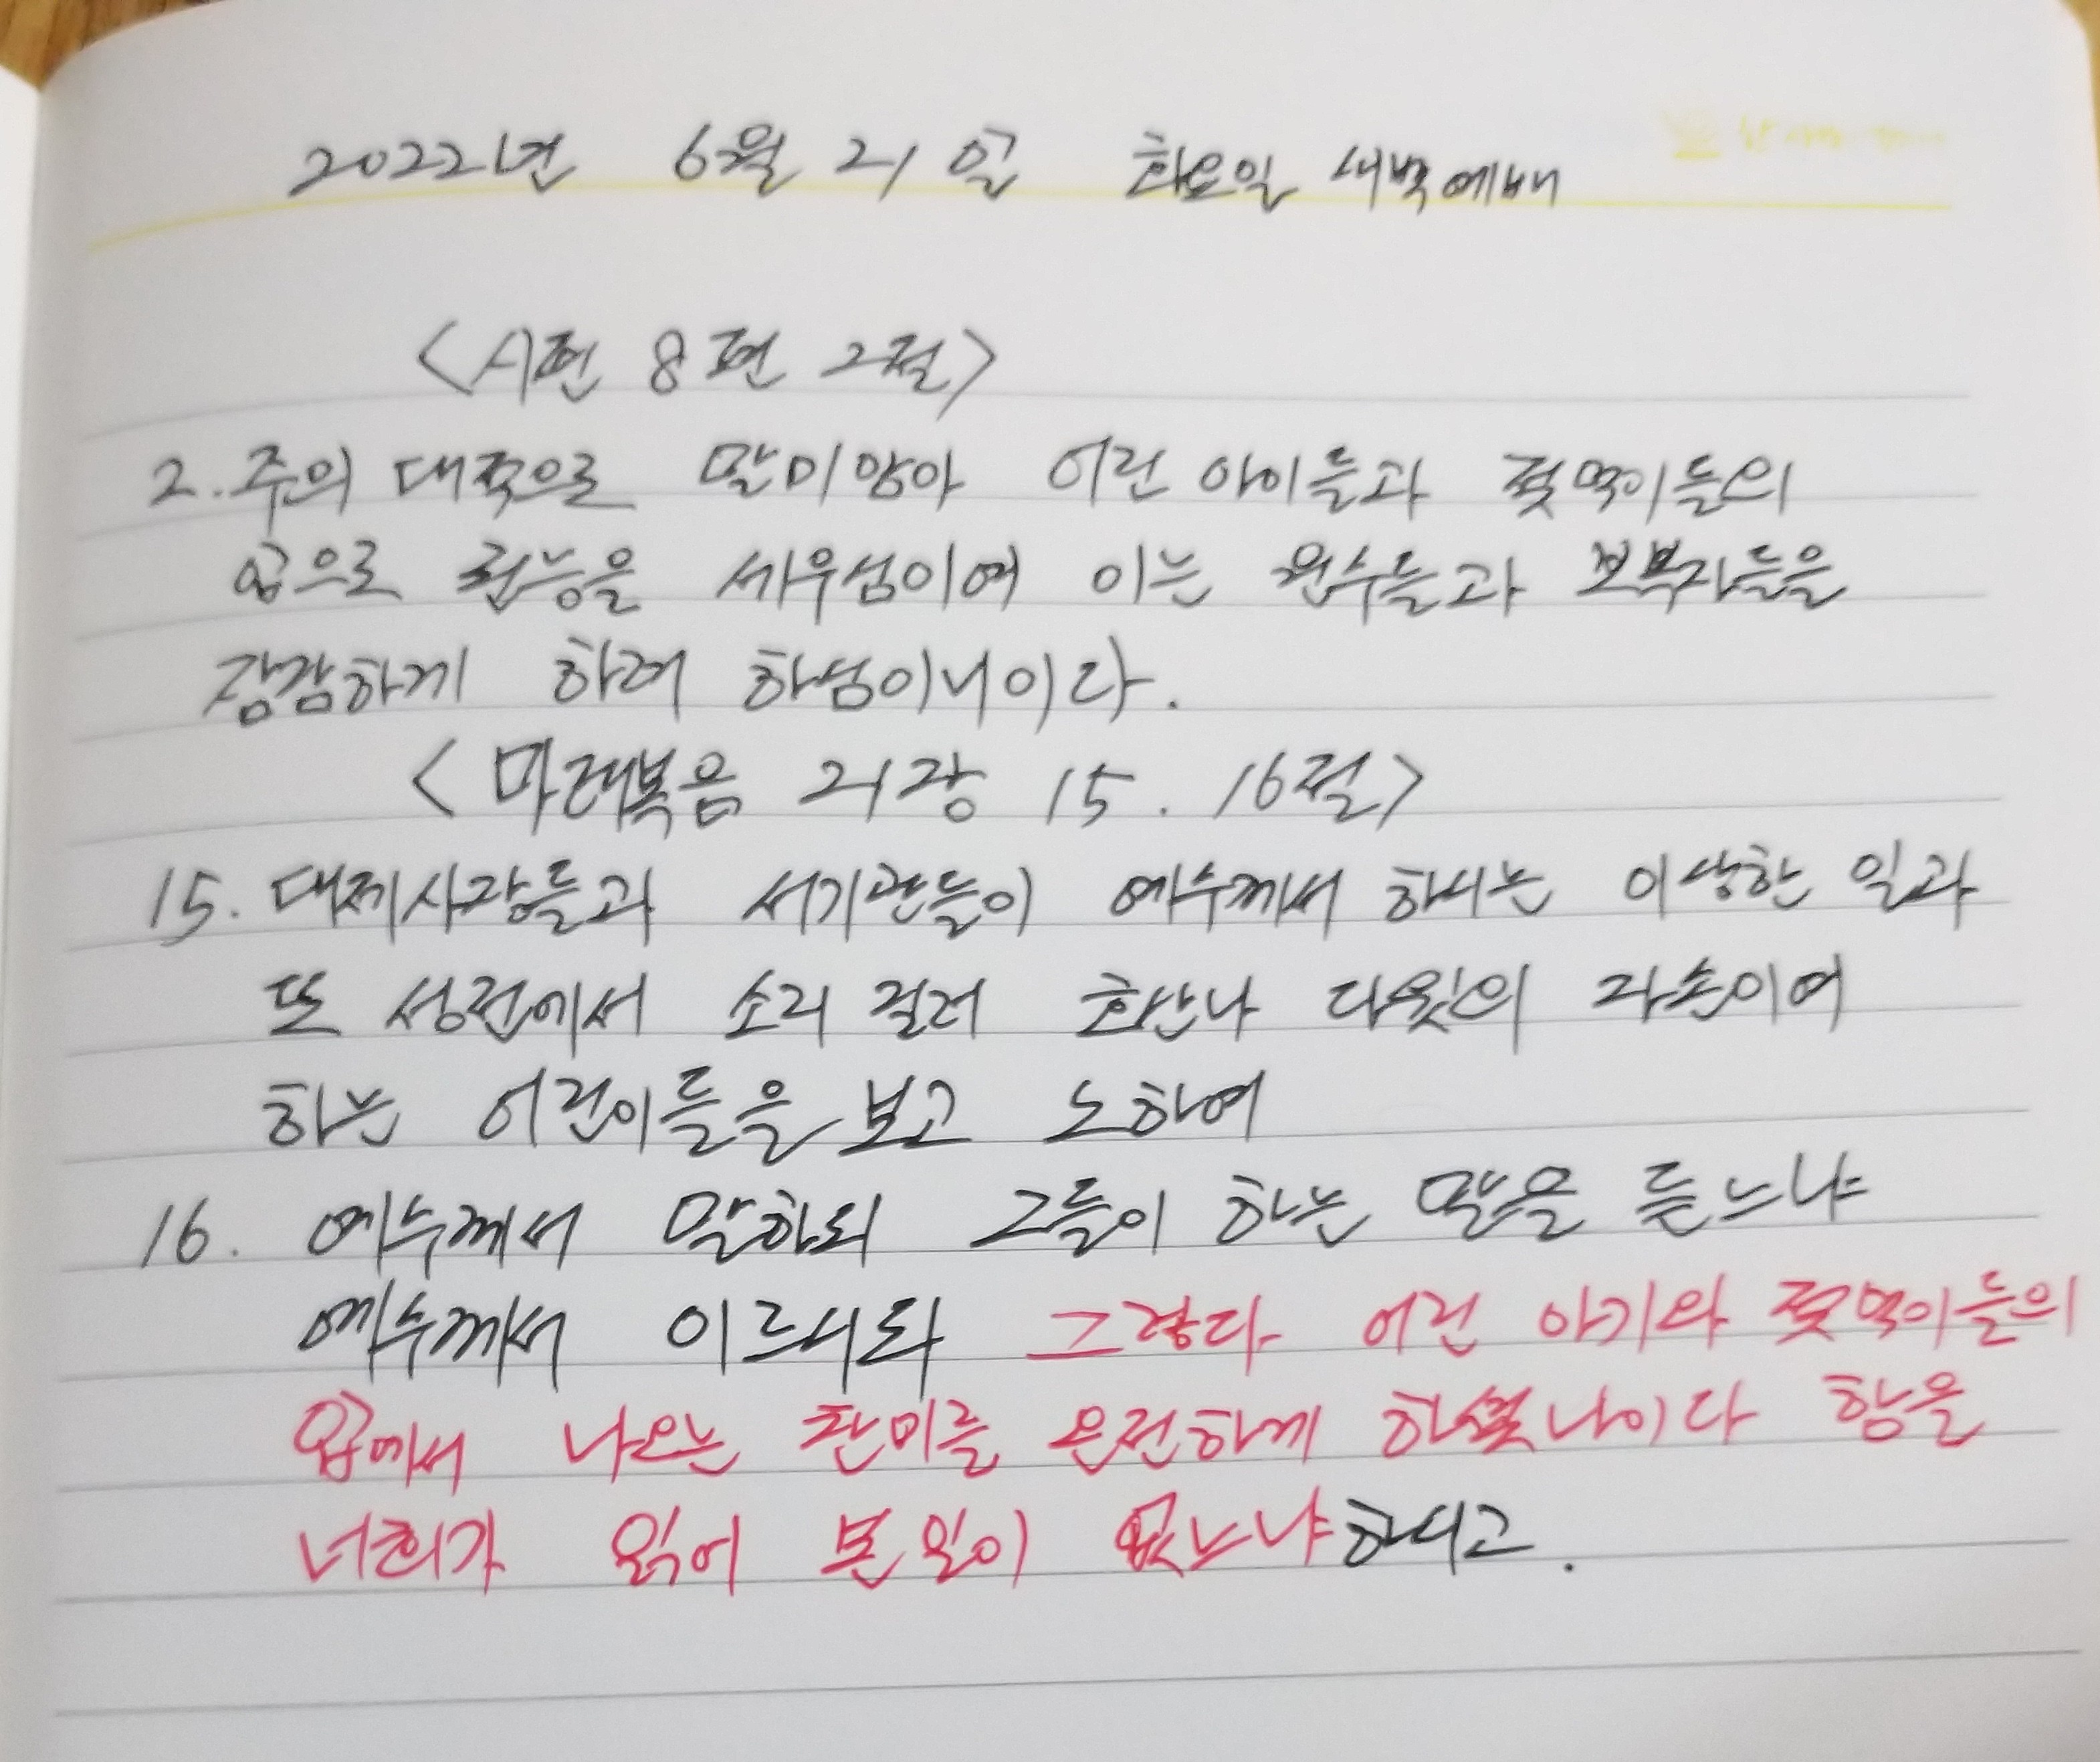 2022년 6월 21일 화요일 새벽예배
<시편 8편 2절>
2. 주의 대적으로 말미암아 어린 아이들과 젖먹이들의
입으로 권능을 세우심이여 이는 원수들과 보복자들을
잠잠하게 하려 하심이니이다.
<마태복음 21장 15. 16절>
15. 대제사장들과 서기관들이 예수께서 하시는 이상한 일과
또 성전에서 소리 질러 호산나 다윗의 자손이여
하는 어린이들을 보고 노하여
16. 예수께서 말하되 그들이 하는 말을 듣느냐
예수께서 이르시되 그렇다 어린 아기와 젖먹이들의
입에서 나오는 찬미를 온전하게 하셨나이다 함을
너희가 읽어 본 일이 없느냐 하시고.